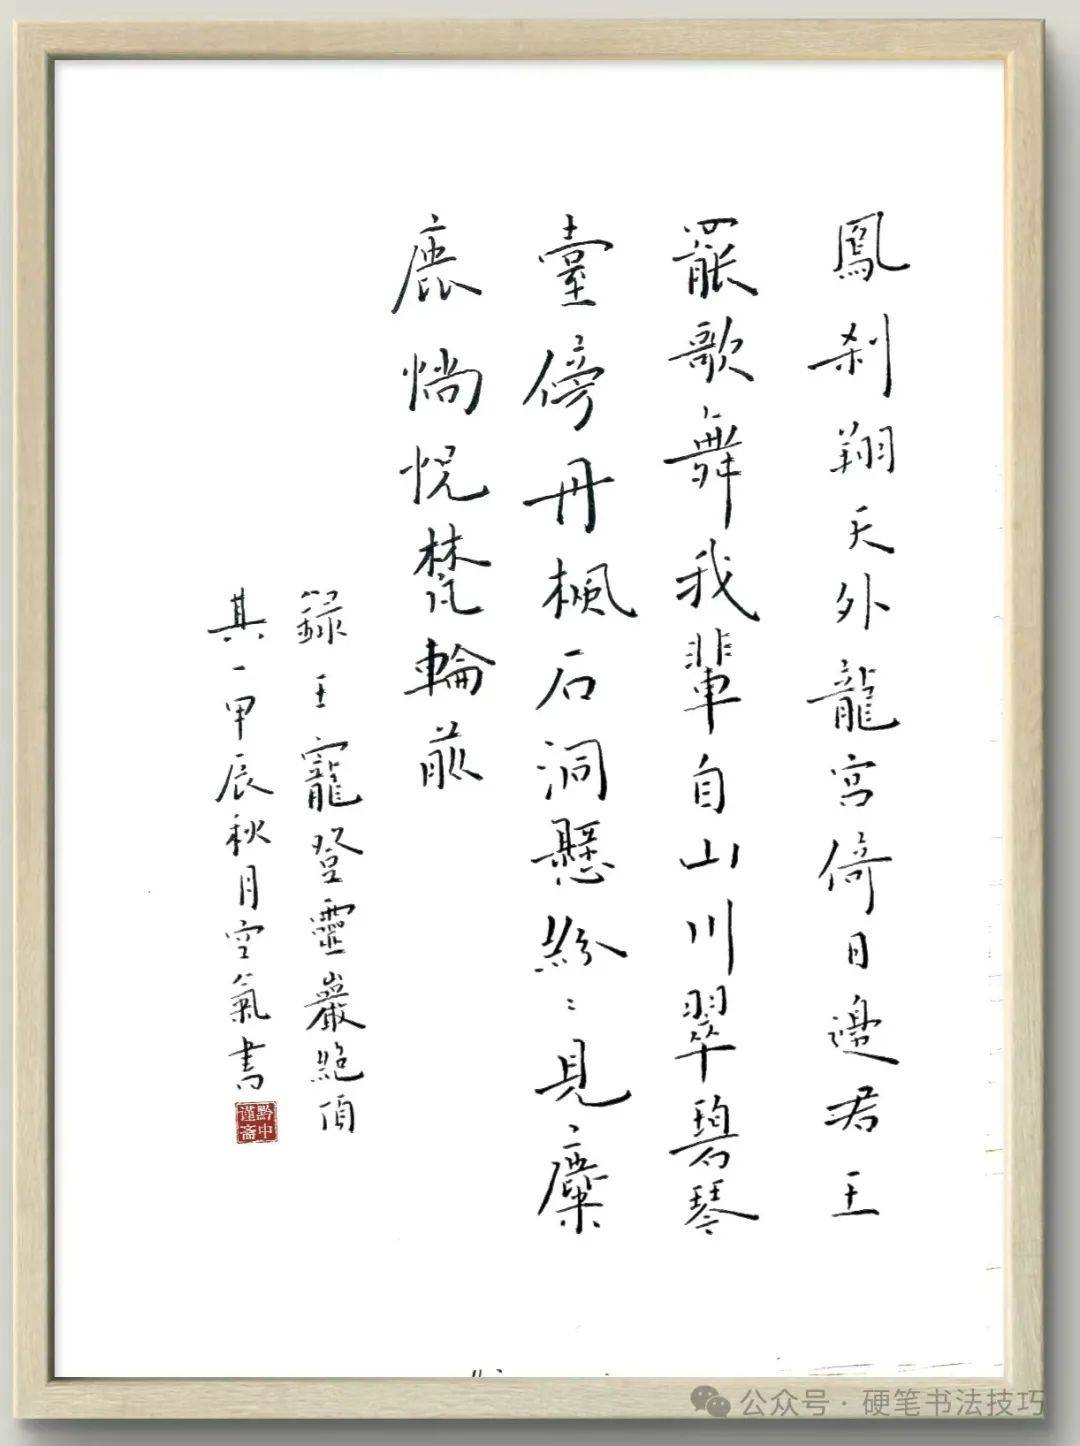 鳳刹翔天外龍宮倚日邊君王
罷歌舞我輩自山川翠碧琴
臺傍丹楓石洞懸紛〻見麋
鹿惝怳梵輪前
錄王寵登靈巖絕頂
其一甲辰秋月空氣書
黔中
谨斋
公众号·硬笔书法技巧